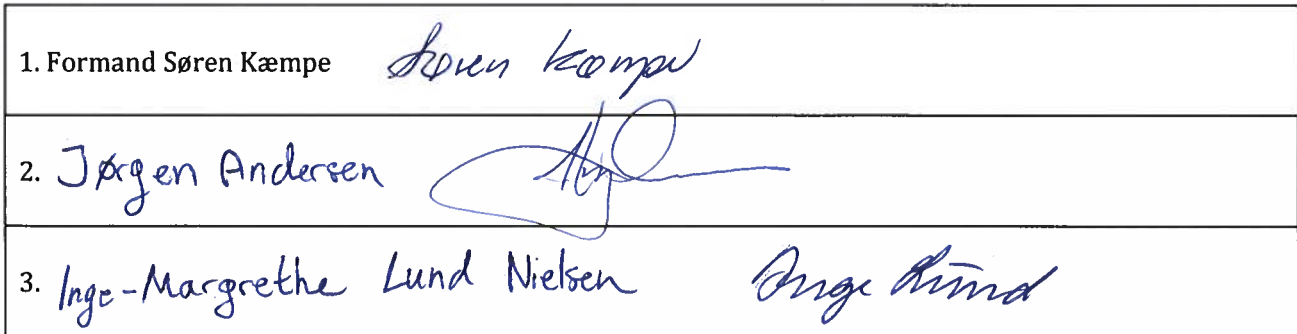 1. Formand Søren Kæmpe Søren Kæmpe
2. Jørgen Andersen
3. Inge-Margrethe Lund Nielsen Inge Lund